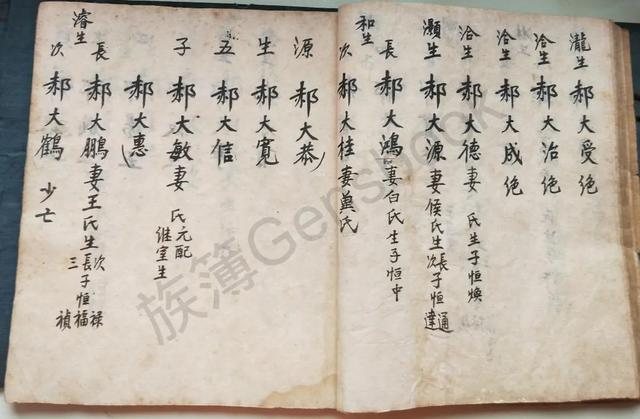 瀧生 郝大受绝
洽生 郝大治绝
洽生 郝大成绝
洽生 郝大德妻 氏生子恒焕
灝生 郝大源妻侯氏生長子恒通 次 達
和生 長 郝大鴻妻白氏生子恒中
次 郝大桂妻 氏
源 郝大恭
生 郝大寬
五 郝大信
子 郝大敏妻 氏元配 继室生
郝大惠
濬生 長 郝大鵬妻王氏生長子恒福 次 禄 三 禎
次 郝大鶴 少亡
族簿Gensbook